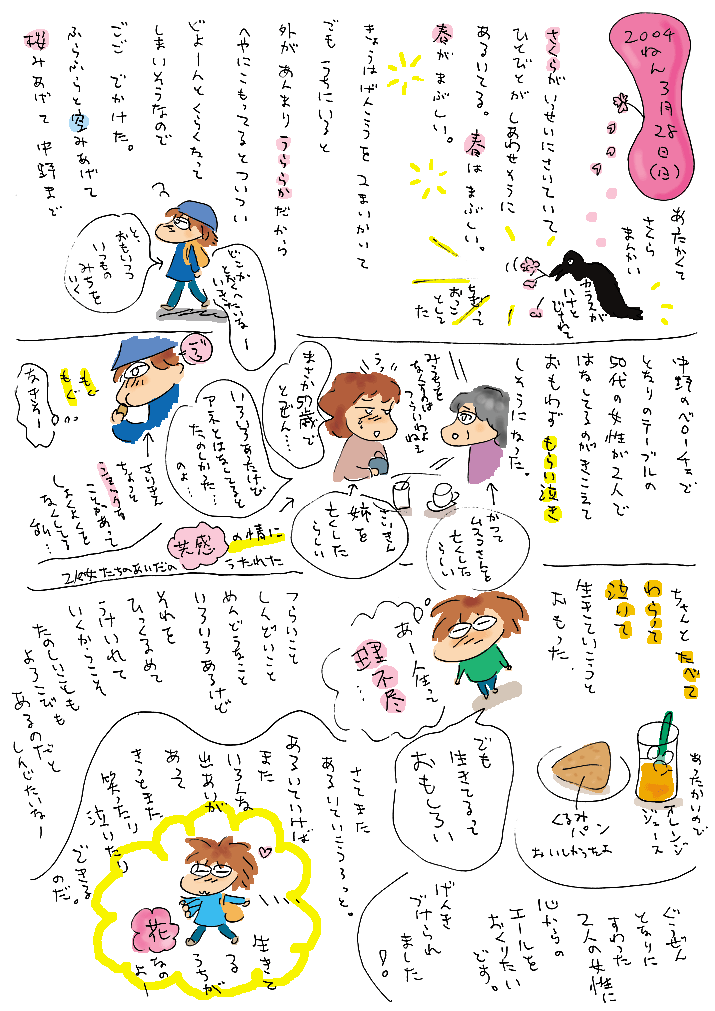 2004
ねん
3月
28
日
(日)
あたたかくて
さくら
まんかい
カラスが
いけと
とまって
おっこ
として
た
さくらがいっせいにさいていて
ひとびとが しあわせそうに
あるいてる。春は まぶしい。
春が まぶしい。
きょうはげんこうを 2まいかいて
でも うちにいると
外が あんまり うららかだから
へやにこもってるとついつい
どよーんとくらくなって
しまいそうなので
ごご でかけた。
ふらふらと空みあげて
桜みあげて 中野まで
どこか
とおくへたいなー
いきたい
と、
おもいつつ
いつもの
みちを
いく
中野のベローチェで
となりのテーブルの
50代の女性が2人で
はなしてるのがきこえて
おもわず もらい泣き
しそうになった。
みうちを
なくすのは
つらいわよ
ねえ
うっ
まさか57歳で
とつぜん…
いろいろあたけど
アネとはなしてると
たのしかった…
のよ…
かつて
ムスコさんを
亡くした
らしい
さいきん
姉を
亡くした
らしい
共感
の情に
うたれた
2人の女たちのあいだの
ごろ
もぐもぐ
なきそー
さいきん
ちょっと
ショックな
ことがあって
しょくよくを
なくしてる
私…
ちゃんと たべて
わらって
泣いて
生きていこうと
おもった
あー人生って
理不尽
…
でも
生きてるって
おもしろい
つらいこと
しんどいこと
めんどうなこと
いろいろあるけど
それを
ひっくるめて
うけいれて
いくからこそ
たのしいことも
よろこびも
あるのだと
しんじたいなー
あったかいので
オレンジ
ジュース
くるみ
パン
おいしかったよ
ぐうぜん
となりに
すわった
2人の女性に
心からの
エールを
おくりたい
です。
げんき
づけられ
ました
!
さてまた
あるいていこうっと。
あるいていけば
また
いろんな
出あいが
あって
きっとまた
笑ったり
泣いたり
できる
のだ。
生きて
る
うちが
花
なの
よー